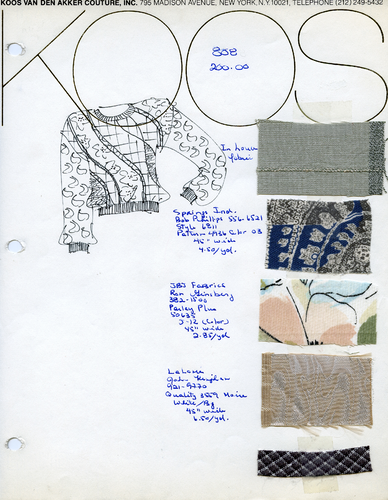 KOOS VAN DEN AKKER COUTURE, INC. 795 MADISON AVENUE, NEW YORK, N.Y. 10021, TEL (212) 249-5432
KOOS
808
200.00
In house
fabric
Springs Ind.
Bob Phillips 556-6521
Style 6811
Pattern 4936 Color 03
45" wide
4.50/yd.
JBJ Fabrics
Ron Ginsberg
382-1500
Paisley Plus
50635
J-12 (Color)
45" wide
2.85/yd
LaLame
John Kaplan
921-9770
Quality 3259 Moire
White/Bg
45" wide
6.50/yd.